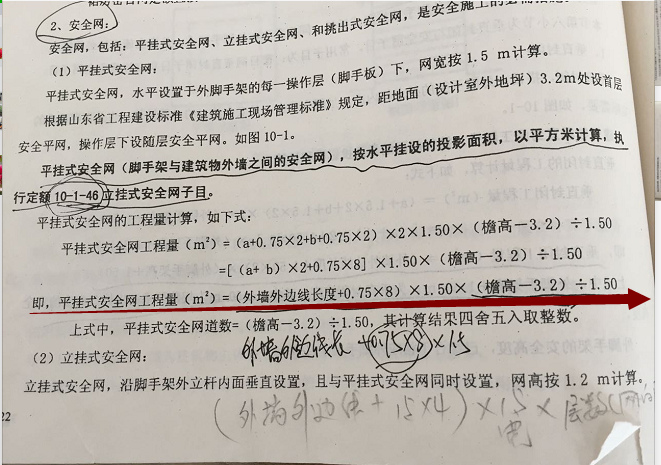 2、安全网:
安全网,包括:平挂式安全网、立挂式安全网、和挑出式安全网,是安全施工的
(1)平挂式安全网:
平挂式安全网,水平设置于外脚手架的每一操作层(脚手板)下,网宽按 1.5 m计算。
根据山东省工程建设标准《建筑施工现场管理标准》规定,距地面(设计室外地坪)3.2m处设首层
安全平网,操作层下设随层安全平网。如图 10-1。
平挂式安全网(脚手架与建筑物外墙之间的安全网),按水平挂设的投影面积,以平方米计算,执
行定额 10-1-46 立挂式安全网子目。
平挂式安全网的工程量计算,如下式:
平挂式安全网工程量(m²)=(a+0.75×2+b+0.75×2)×2×1.50×(檐高-3.2)÷1.50
=[(a+ b)×2+0.75×8]×1.50×(檐高-3.2)÷1.50
即,平挂式安全网工程量(m²)=(外墙外边线长度+0.75×8)×1.50×(檐高-3.2)÷1.50
上式中,平挂式安全网道数=(檐高-3.2)÷1.50,其计算结果四舍五入取整数。
(2)立挂式安全网:
外墙外边线长 +0.75×8)×1.5
立挂式安全网,沿脚手架外立杆内面垂直设置,且与平挂式安全网同时设置,网高按 1.2 m计算。
22
(外墙外边线+1.5×4)×1.5×层数